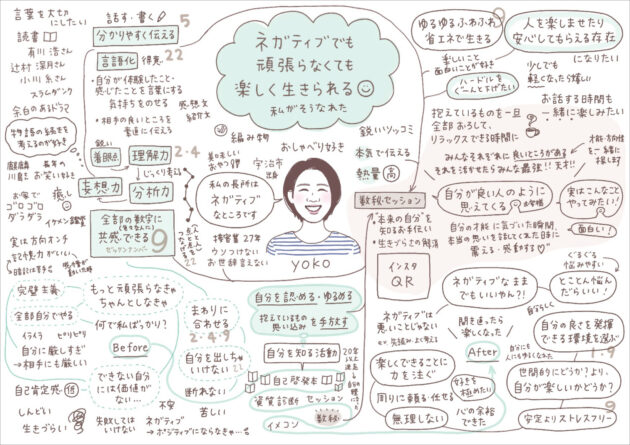 言葉を大切に
したい
読書
有川浩さん
辻村深月さん
小川糸さん
スラムダンク
余白のある
物語の続きを
考えるのが好き
麒麟
川島さん
長年の
お笑い好き
お家で
ゴロゴロ
ダラダラ
癒し
イケメン
実は方向オンチ
記憶力がいい
話す・書く
5
分かりやすく伝える
言語化
得意
22
・自分が体験したこと・
感じたことを言葉にする
気持ちをのせる
・相手の良いところを
素直に伝える
感想文
紹介文
鋭い
着眼点
理解力
2・4
じっくり考える
妄想力
分析力
全部の数字に
共感できる
9
点と点を
つなげる
ネガティブでも
頑張らなくても
楽しく生きられる
私がそうなれた
編み物
おしゃべり好き
美味しい
おやつ
宇治市
出身
私の長所は
ネガティブ
なところです
接客業27年
ウソつけない
お世辞言えない
YOKO
鋭いツッコミ
本気で伝える
熱量
高
数秘セッション
・本来の自分を
知るお手伝い
・生きづらさの解消
インスタ
QR
ゆるゆるふわふわ
省エネで生きる
9
人を楽しませたり
安心してもらえる存在
になりたい
楽しいこと
面白いことが好き
ハードルを
ぐーんと下げたい
少しでも
軽くなったら嬉しい
お話する時間も
一緒に楽しみたい
抱えているものを一旦
全部おろして、
リラックスできる時間に
みんなそれぞれに良いところがある
それを活かせたらみんな最強!!天才!!
才能・方向性
を一緒に
探します
自分が良い人のように
思えてくる
の声
実はこんなこと
やってみたい!
面白い!
自分の才能に気づいた瞬間、
本当の思いを話してくれた時に
震える・感動する
完璧主義
全部自分でやる
イライラ
ピリピリ
自分に厳しすぎ
→相手にも厳しい
自己肯定感
低
しんどい
生きづらい
もっと頑張らなきゃ
ちゃんとしなきゃ
何で私ばっかり?
Before
できない自分
には価値が
ない…
失敗しては
いけない
不安
ネガティブ
→ポジティブにならなきゃ…
まわりに
合わせる
2・4・9
自分を出しちゃ
いけない
22
断れない
苦しい
自分を認める・ゆるめる
抱えているもの
思い込み
を手放す
自分を知る活動
自己啓発本
資質診断
セッション
イメコン
数秘
ネガティブなまま
でもいいやん?!
とことん悩ん
だらいい!
ぐるぐる
悩みやすい
ネガティブは
悪いことじゃない
聞き違ったら
楽しくなった
自分らしく
自分の良さを発揮
できる環境を選ぶ
1・9
楽しくできること
に力を注ぐ
After
周りに頼る・任せる
好きを
極めたい
無理しない
心の余裕
できた
世間的にどうか?より、
自分が楽しいかどうか?
安定よりストレスフリー
9